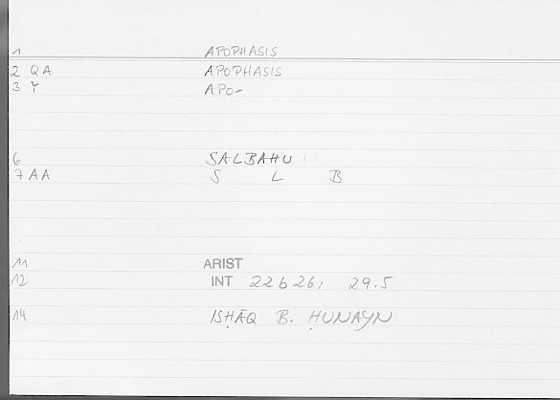 1 APOPHASIS
2 QA APOPHASIS
3 Y APO-
6 SALBAHU
7 AA S L B
11 ARIST
12 INT 22b26, 29.5
14 ISḤĀQ B. ḤUNAYN